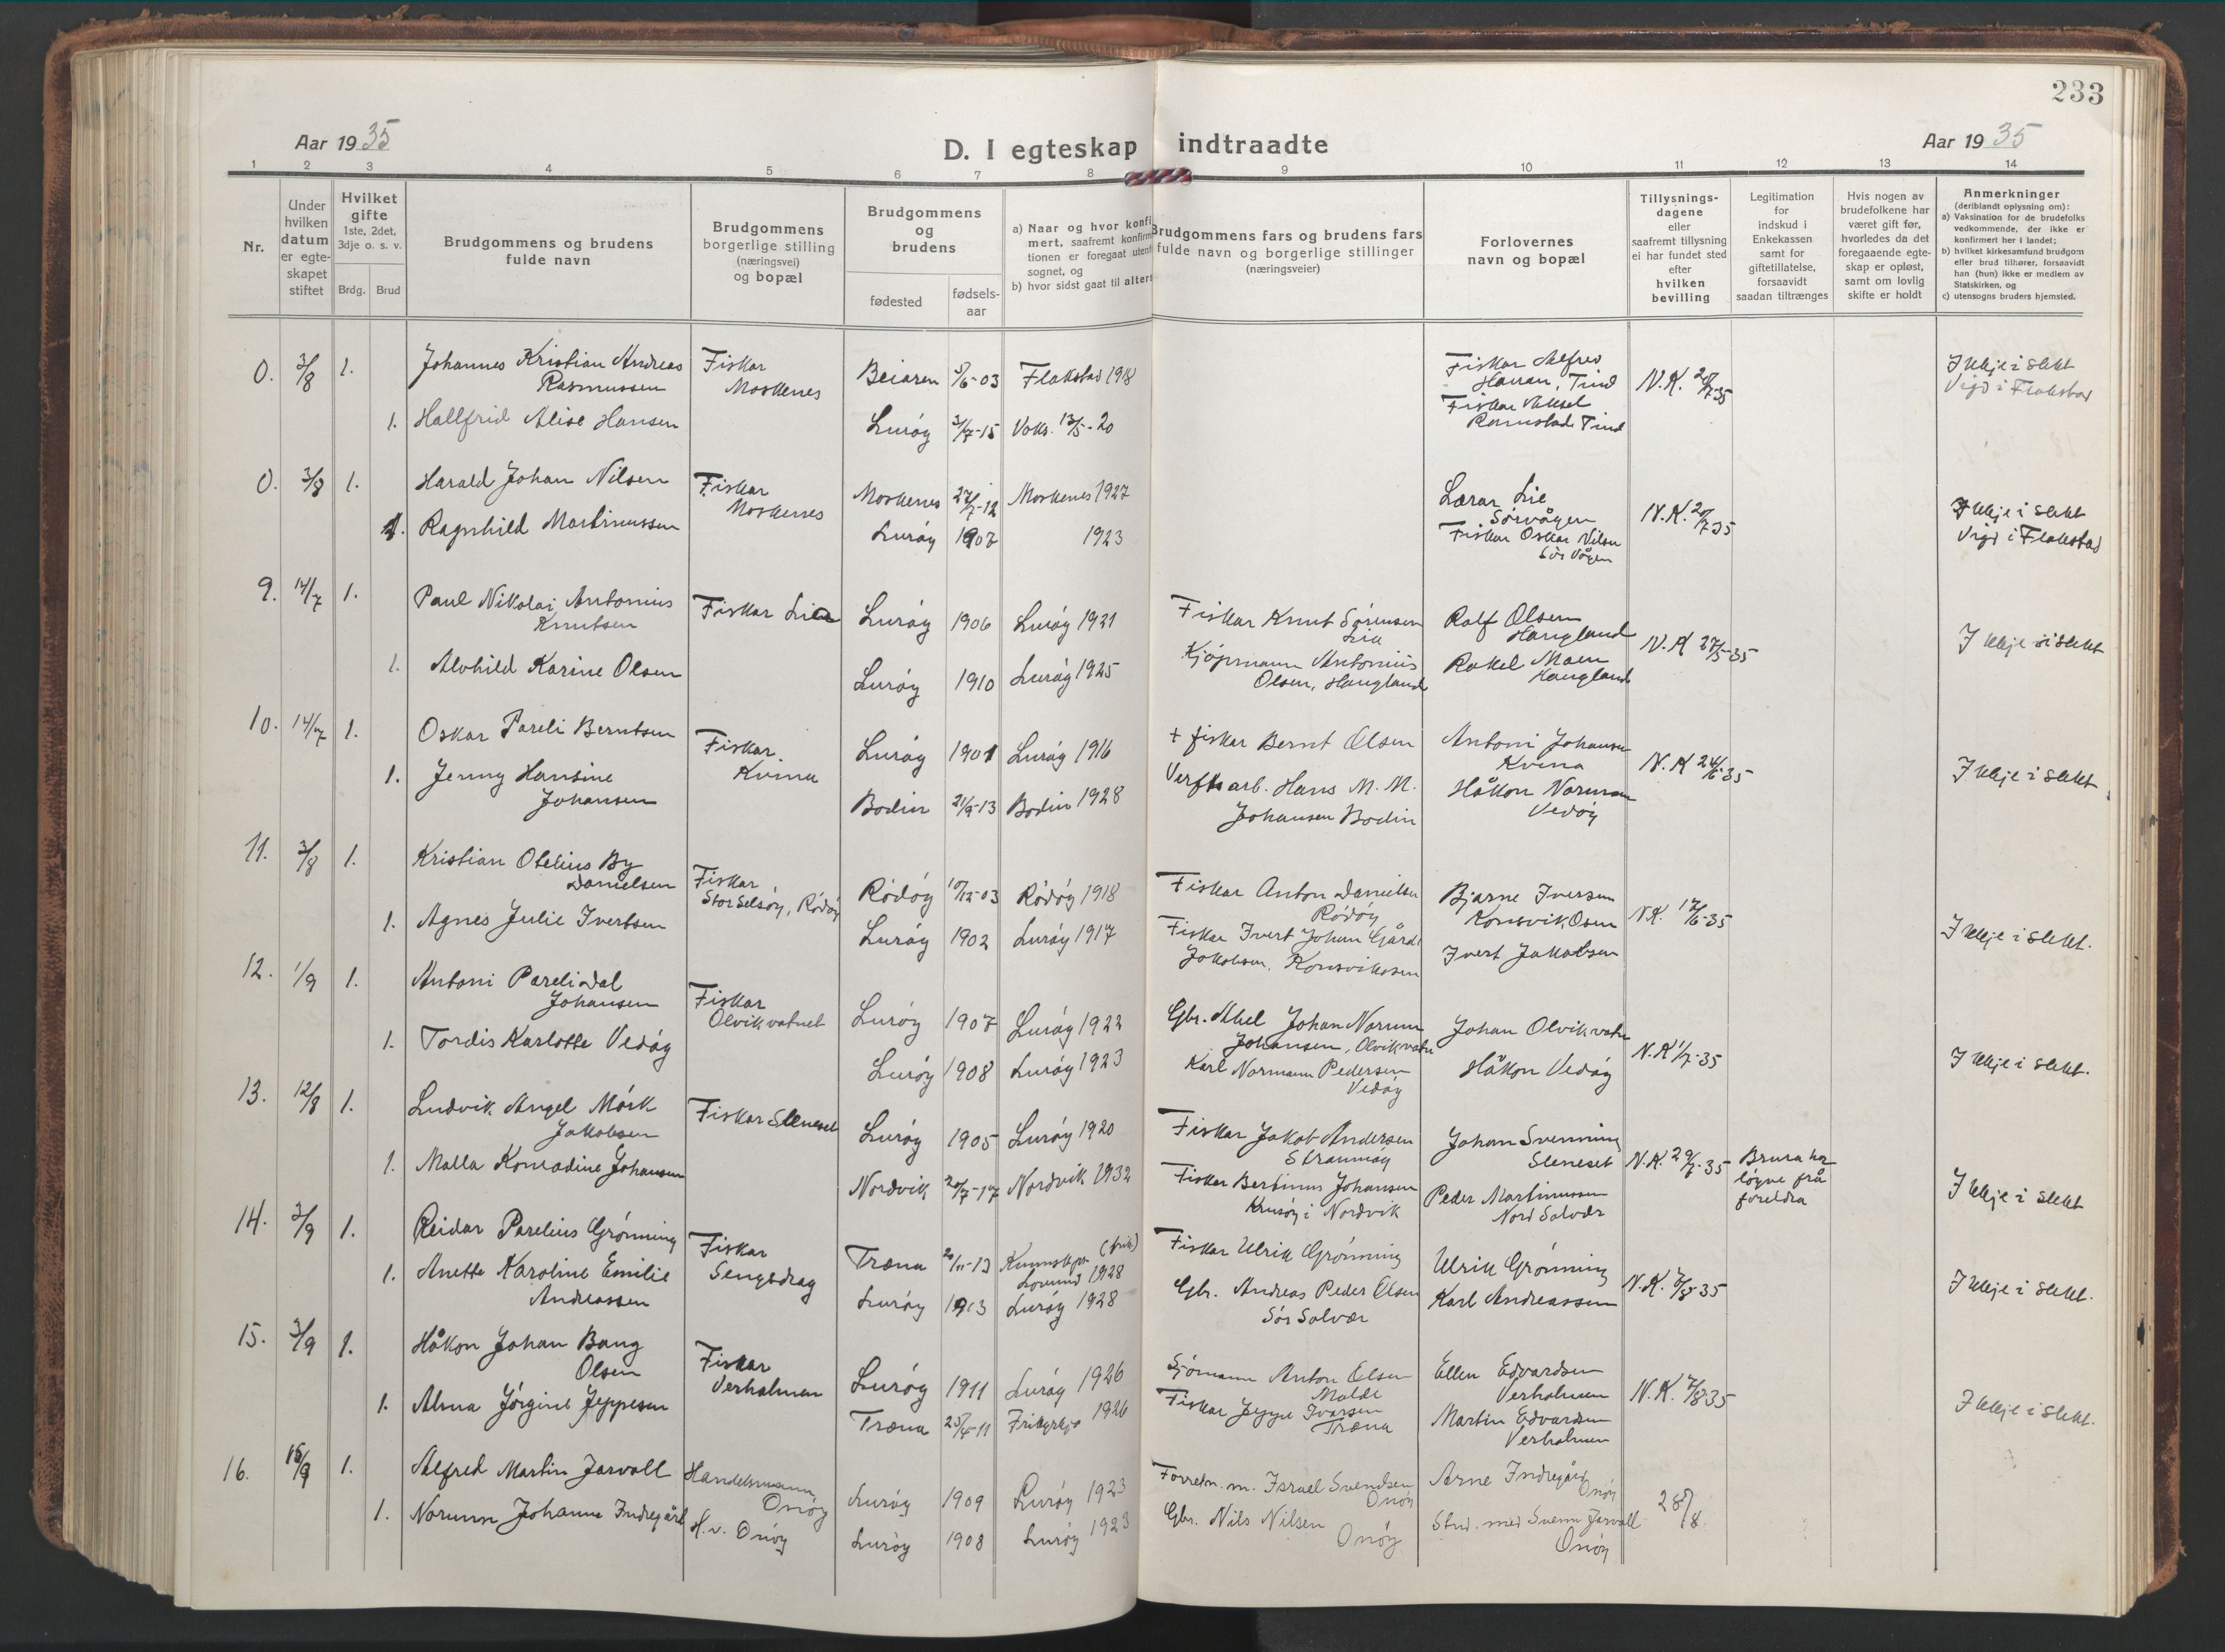 233
Aar 1935
D. I egteskap indtraadte
Aar 1935
1 2 3 4 5 6 7 8 9 10 11 12 13 14
Nr.
Under
hvilken
datum
er egte-
skapet
stiftet
Hvilket
gifte
1ste, 2det,
3dje o. s. v.
Brdg. Brud
Brudgommens og brudens
fulde navn
Brudgommens
borgerlige stilling
(næringsvei)
og bopæl
Brudgommens
og
brudens
fødested
fødsels-
aar
a) Naar og hvor konfi
mert, saafremt konfirm
tionen er foregaat utenf
sognet, og
b) hvor sidst gaat til alters
Brudgommens fars og brudens fars
fulde navn og borgerlige stillinger
(næringsveier)
Forlovernes
navn og bopæl
Tillysnings-
dagene
eller
saafremt tillysning
ei har fundet sted
efter
hvilken
bevilling
Legitimation
for
indskud i
Enkekassen
samt for
giftetillatelse,
forsaavidt
saadan tiltrænges
Hvis nogen av
brudefolkene har
været gift før,
hvorledes da det
foregaaende egte-
skap er opløst,
samt om lovlig
skifte er holdt
Anmerkninger
(deriblandt oplysning om):
a) Vaksination for de brudefolks
vedkommende, der ikke er
konfirmert her i landet;
b) hvilket kirkesamfund brudgom
eller brud tilhører, forsaavidt
han (hun) ikke er medlem av
Statskirken, og
c) utensogns bruders hjemsted.
0. 3/8 1. Johannes Kristian Andreas
Rasmussen
Fiskar
Moskenes
Beiaren 5/6-03 Flakstad 1918
Fiskar Alfred
Hanan, Tind
Fiskar Aksel
Ramstad Tind
N.K. 20/7-35
Ikkje i slekt
Vigd i Flakstad
1. Hallfrid Alise Hansen
Lurøy 3/7-15 Vaks. 13/5-20
0. 3/8 1. Harald Johan Nilsen
Fiskar
Moskenes
Moskenes 27/7-12 Moskenes 1927
Lærar Lie
Sørvågen
Fiskar Oskar Nilsen
Sørvågen
N.K. 20/7 35
Ikkje i slekt
Vigd i Flakstad
1. Ragnhild Martinussen
Lurøy 1907 1923
9. 14/7 1. Paul Nikolai Antonius
Knutsen
Fiskar Lia
Lurøy 1906 Lurøy 1921
Fiskar Knut Sørensen
Lia
Rolf Olsen
Haugland
N.K 27/5-35
Ikkje i slekt
1. Alvhild Karine Olsen
Lurøy 1910 Lurøy 1925
Kjøpmann Antonius
Olsen, Haugland
Rakel Moen
Haugland
10. 14/7 1. Oskar Pareli Berntsen
Fiskar
Kvina
Lurøy 1901 Lurøy 1916
+ fiskar Bernt Olsen
Antoni Johansen
Kvina
N.K 24/6-35
Ikkje i slekt
1. Jenny Hansine
Johansen
Bodin 21/9-13 Bodin 1928
Verftsarb. Hans M. M.
Johansen Bodin
Håkon Norman
Vedøy
11. 3/8 1. Kristian Otelius By
Danielsen
Fiskar
Stor Selsøy, Rødøy
Rødøy 10/12-03 Rødøy 1918
Fiskar Anton Danielsen
Rødøy
Bjarne Iversen
Konsvik, Osen
N.K. 17/6-35
Ikkje i slekt.
1. Agnes Julie Ivertsen
Lurøy 1902 Lurøy 1917
Fiskar Ivert Johan Gård
Jakobsen, Konsvikosen
Ivert Jakobsen
12. 1/9 1. Antoni Pareli Dal
Johansen
Fiskar
Olvikvatnet
Lurøy 1907 Lurøy 1922
Gbr. Abel Johan Norum
Johansen, Olvikvatn
Johan Olvikvatn
N.K 1/7-35
Ikkje i slekt.
1. Tordis Karlotte Vedøy
Lurøy 1908 Lurøy 1923
Karl Normann Pedersen
Vedøy
Håkon Vedøy
13. 12/8 1. Ludvik Angel Mørk
Jakobsen
Fiskar Steneset
Lurøy 1905 Lurøy 1920
Fiskar Jakob Andersen
Straumøy
Johan Svenning
Steneset
N.K. 29/7-35
Brura har
løyve frå
foreldra
Ikkje i slekt
1. Malla Konradine Johansen
Nordvik 20/7-17 Nordvik 1932
Fiskar Bertinus Johansen
Krusøy i Nordvik
Peder Martinussen
Nord Solvær
14. 3/9 1. Reidar Parelius Grønning
Fiskar
Sengsdrag
Træna 20/11-13 (frik)
Lovund 1928
Fiskar Ulrik Grønning
Ulrik Grønning
N.K. 7/8-35
Ikkje i slekt.
1. Anette Karoline Emilie
Andreassen
Lurøy 1913 Lurøy 1928
Gbr. Andreas Peder Olsen
Sør Solvær
Karl Andreassen
15. 3/9 1. Håkon Johan Bang
Olsen
Fiskar
Verholmen
Lurøy 1911 Lurøy 1926
Sjømann Anton Olsen
Molde
Ellen Edvardsen
Verholmen
N.K. 7/8 35
Ikkje i slekt.
1. Alma Jørgine Jeppesen
Træna 25/4-11 Frikyrkja 1926
Fiskar Jeppe Ivarsen
Træna
Martin Edvardsen
Verholmen
16. 15/9 1. Alfred Martin Jarvoll
Handelsmann
Onøy
Lurøy 1909 Lurøy 1923
Forretn. m. Israel Svendsen
Onøy
Arne Indregård
Onøy
28/8
1. Norunn Johanne Indregård
H.v. Onøy
Lurøy 1908 Lurøy 1923
Gbr. Nils Nilsen
Onøy
Stud. med Svenn Jarvoll
Onøy